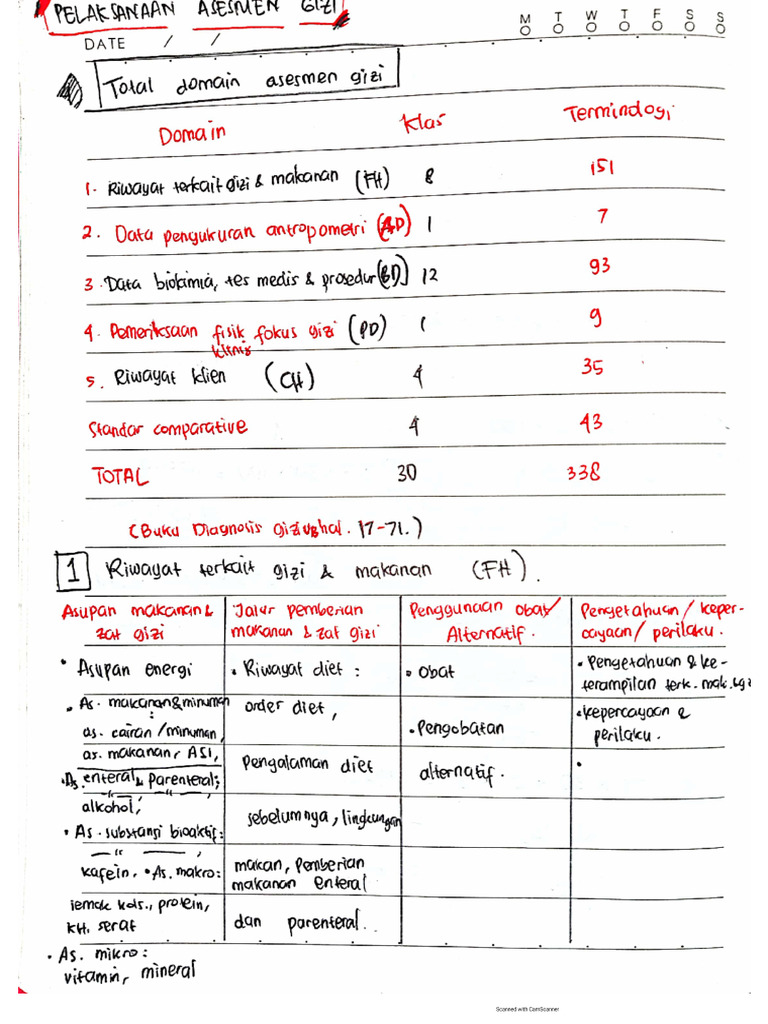 PELAKSANAAN ASESMEN GIZI
M T W T F S S
DATE / /
Total domain asesmen gizi
Domain Klas Terminologi
1. Riwayat terkait gizi & makanan (FH) 8 151
2. Data pengukuran antropometri (AD) 1 7
3. Data biokimia, tes medis & prosedur (BD) 12 93
4. Pemeriksaan fisik fokus gizi (PD) 1 9
klinis
5. Riwayat klien (CH) 4 35
Standar comparative 4 43
TOTAL 30 338
(Buku Diagnosis gizi hal. 17-71.)
1 Riwayat terkait gizi & makanan (FH).
Asupan makanan & zat gizi
Jalur pemberian makanan & zat gizi
Penggunaan obat/ Alternatif.
Pengetahuan / keper-cayaan / perilaku.
• Asupan energi
• As. makanan & minuman :
as. cairan / minuman,
as. makanan, ASI,
• As. enteral & parenteral;
— " — " —,
alkohol,
• As. substansi bioaktif:
— " —,
kafein, • As. makro:
lemak kols., protein,
KH. serat
• As. mikro:
vitamin, mineral
• Riwayat diet :
order diet,
Pengalaman diet
sebelumnya, lingkungan
makan, Pemberian
makanan enteral
dan parenteral..
• Obat
• Pengobatan
alternatif.
• Pengetahuan & ke-
terampilan terk. mak. & gizi
• Kepercayaan &
perilaku.
•
Scanned with CamScanner